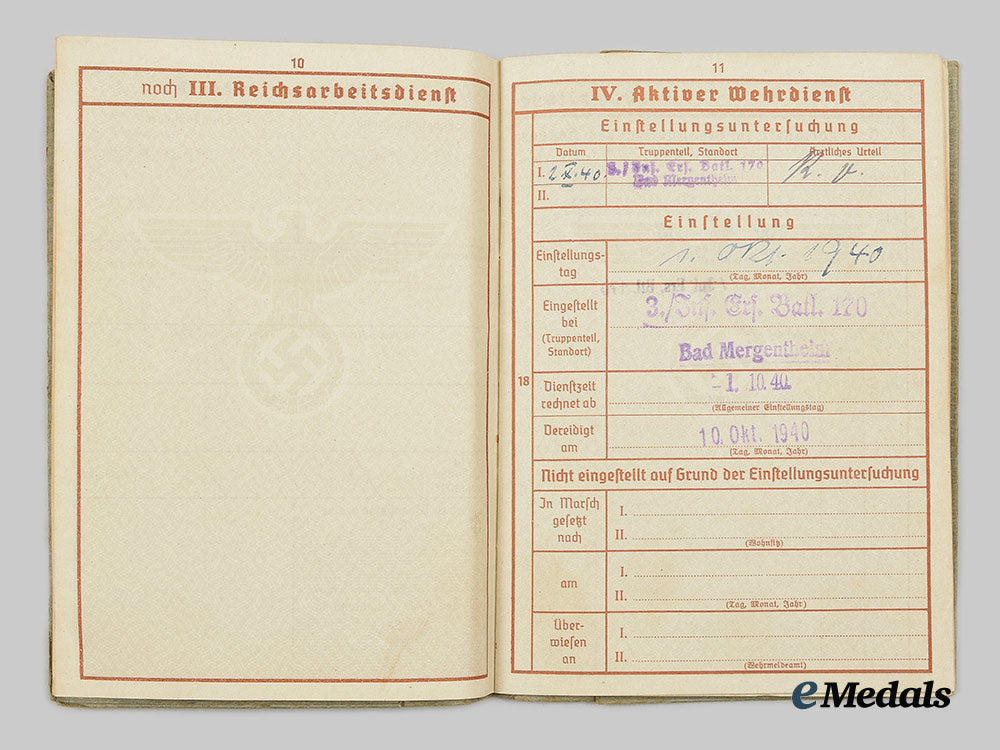 10
noch III. Reichsarbeitsdienst
11
IV. Aktiver Wehrdienst
Einstellungsuntersuchung
Datum Truppenteil, Standort Ärztliches Urteil
I. 2.X.40. 3./Inf. Ers. Batl. 170
Bad Mergentheim
K. v.
II.
Einstellung
Einstellungs-
tag
1. Okt. 1940
(Tag, Monat, Jahr)
Eingestellt
bei
(Truppenteil,
Standort)
3./Inf. Ers. Batl. 170
Bad Mergentheim
18
Dienstzeit
rechnet ab
-1. 10. 40.
(Allgemeiner Einstellungstag)
Vereidigt
am
10. Okt. 1940
(Tag, Monat, Jahr)
Nicht eingestellt auf Grund der Einstellungsuntersuchung
In Marsch
gesetzt
nach
I.
II.
(Wohnsitz)
am
I.
II.
(Tag, Monat, Jahr)
Über-
wiesen
an
I.
II.
(Wehrmeldeamt)
eMedals